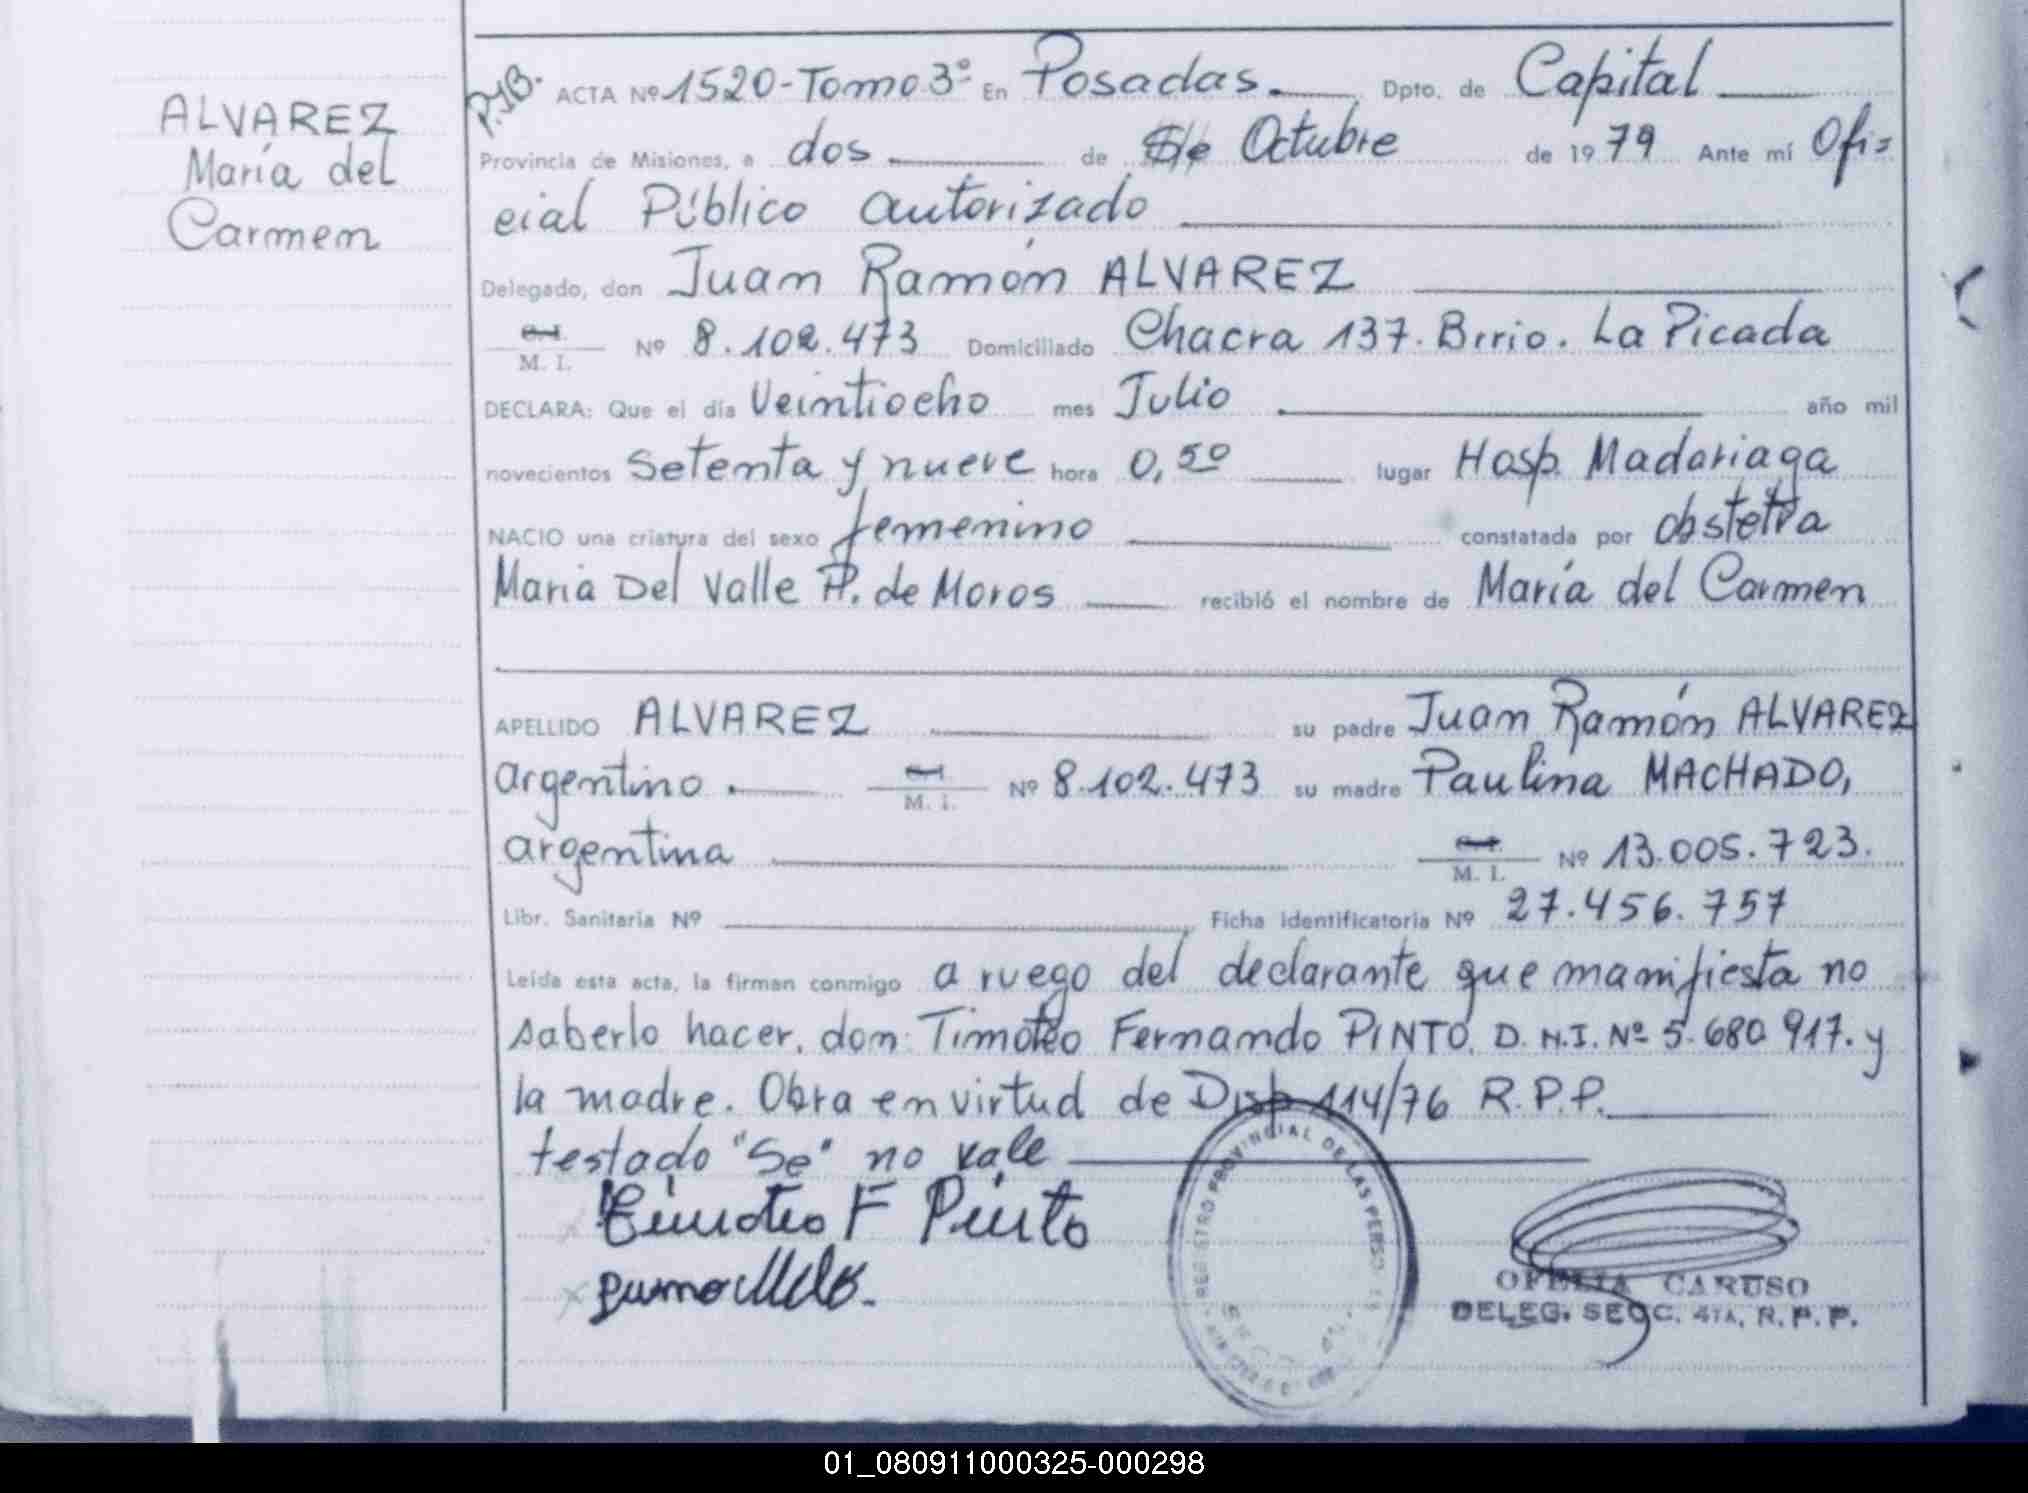 ALVAREZ
María del
Carmen
P.J.B. ACTA Nº 1520-Tomo 3º En Posadas. Dpto. de Capital
Provincia de Misiones, a dos de Octubre de 1979 Ante mí Ofi=
cial Público autorizado
Delegado, don Juan Ramón ALVAREZ
M. I. Nº 8.102.473 Domiciliado Chacra 137. Brrio. La Picada
DECLARA: Que el día Veintiocho mes Julio año mil
novecientos setenta y nueve hora 0,50 lugar Hosp. Madariaga
NACIO una criatura del sexo femenino constatada por obstetra
Maria Del Valle P. de Moros recibió el nombre de María del Carmen
APELLIDO ALVAREZ su padre Juan Ramón ALVAREZ
argentino. M. I. Nº 8.102.473 su madre Paulina MACHADO,
argentina M. I. Nº 13.005.723.
Libr. Sanitaria Nº Ficha identificatoria Nº 27.456.757
Leída esta acta, la firman conmigo a ruego del declarante que manifiesta no
saberlo hacer, don: Timoteo Fernando PINTO. D.N.I. Nº 5.680.917. y
la madre. Obra en virtud de Disp 114/76 R.P.P.
testado "Se" no vale
Timoteo F Pinto
REGISTRO PROVINCIAL DE LAS PERSO
OFELIA CARUSO
DELEG. SECC. 4TA. R. P. P.
01_080911000325-000298